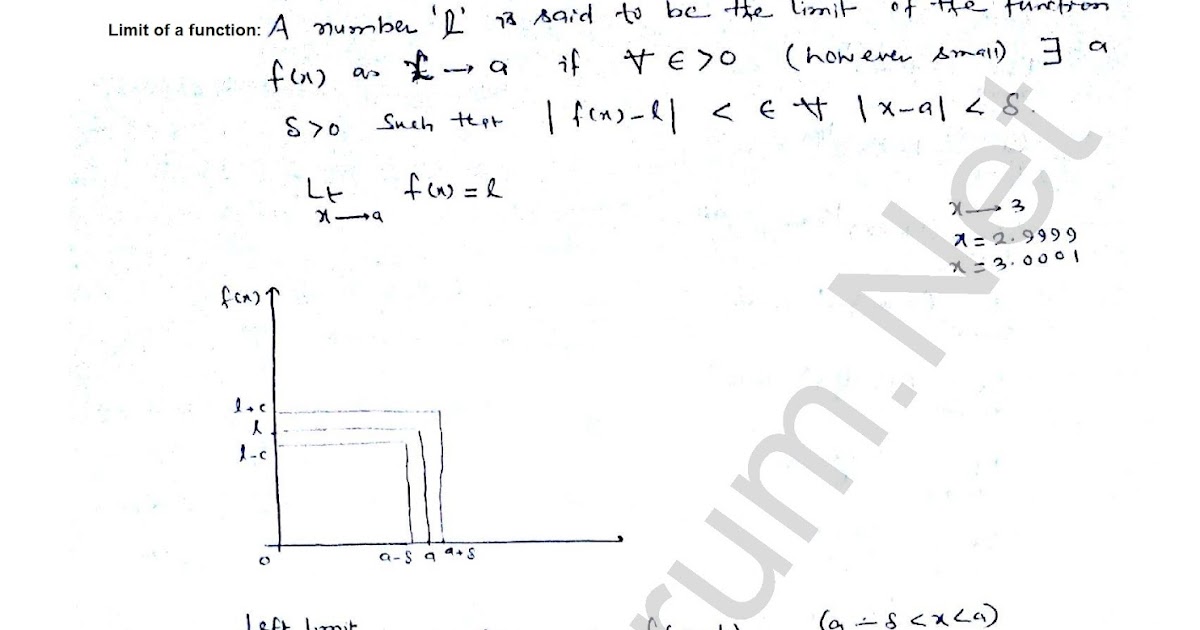 Limit of a function: A number 'l' is said to be the limit of the function
f(x) as x → a if ∀ ∈ > 0 (however small) ∃ a
δ > 0 Such that | f(x) - l | < ∈ ∀ | x - a | < δ.
Lt f(x) = l
x → a
x → 3
x = 2.9999
x = 3.0001
f(x)
l+ϵ
l
l-ϵ
0
a-δ a a+δ
Left limit (a - δ < x < a)
rum.Net